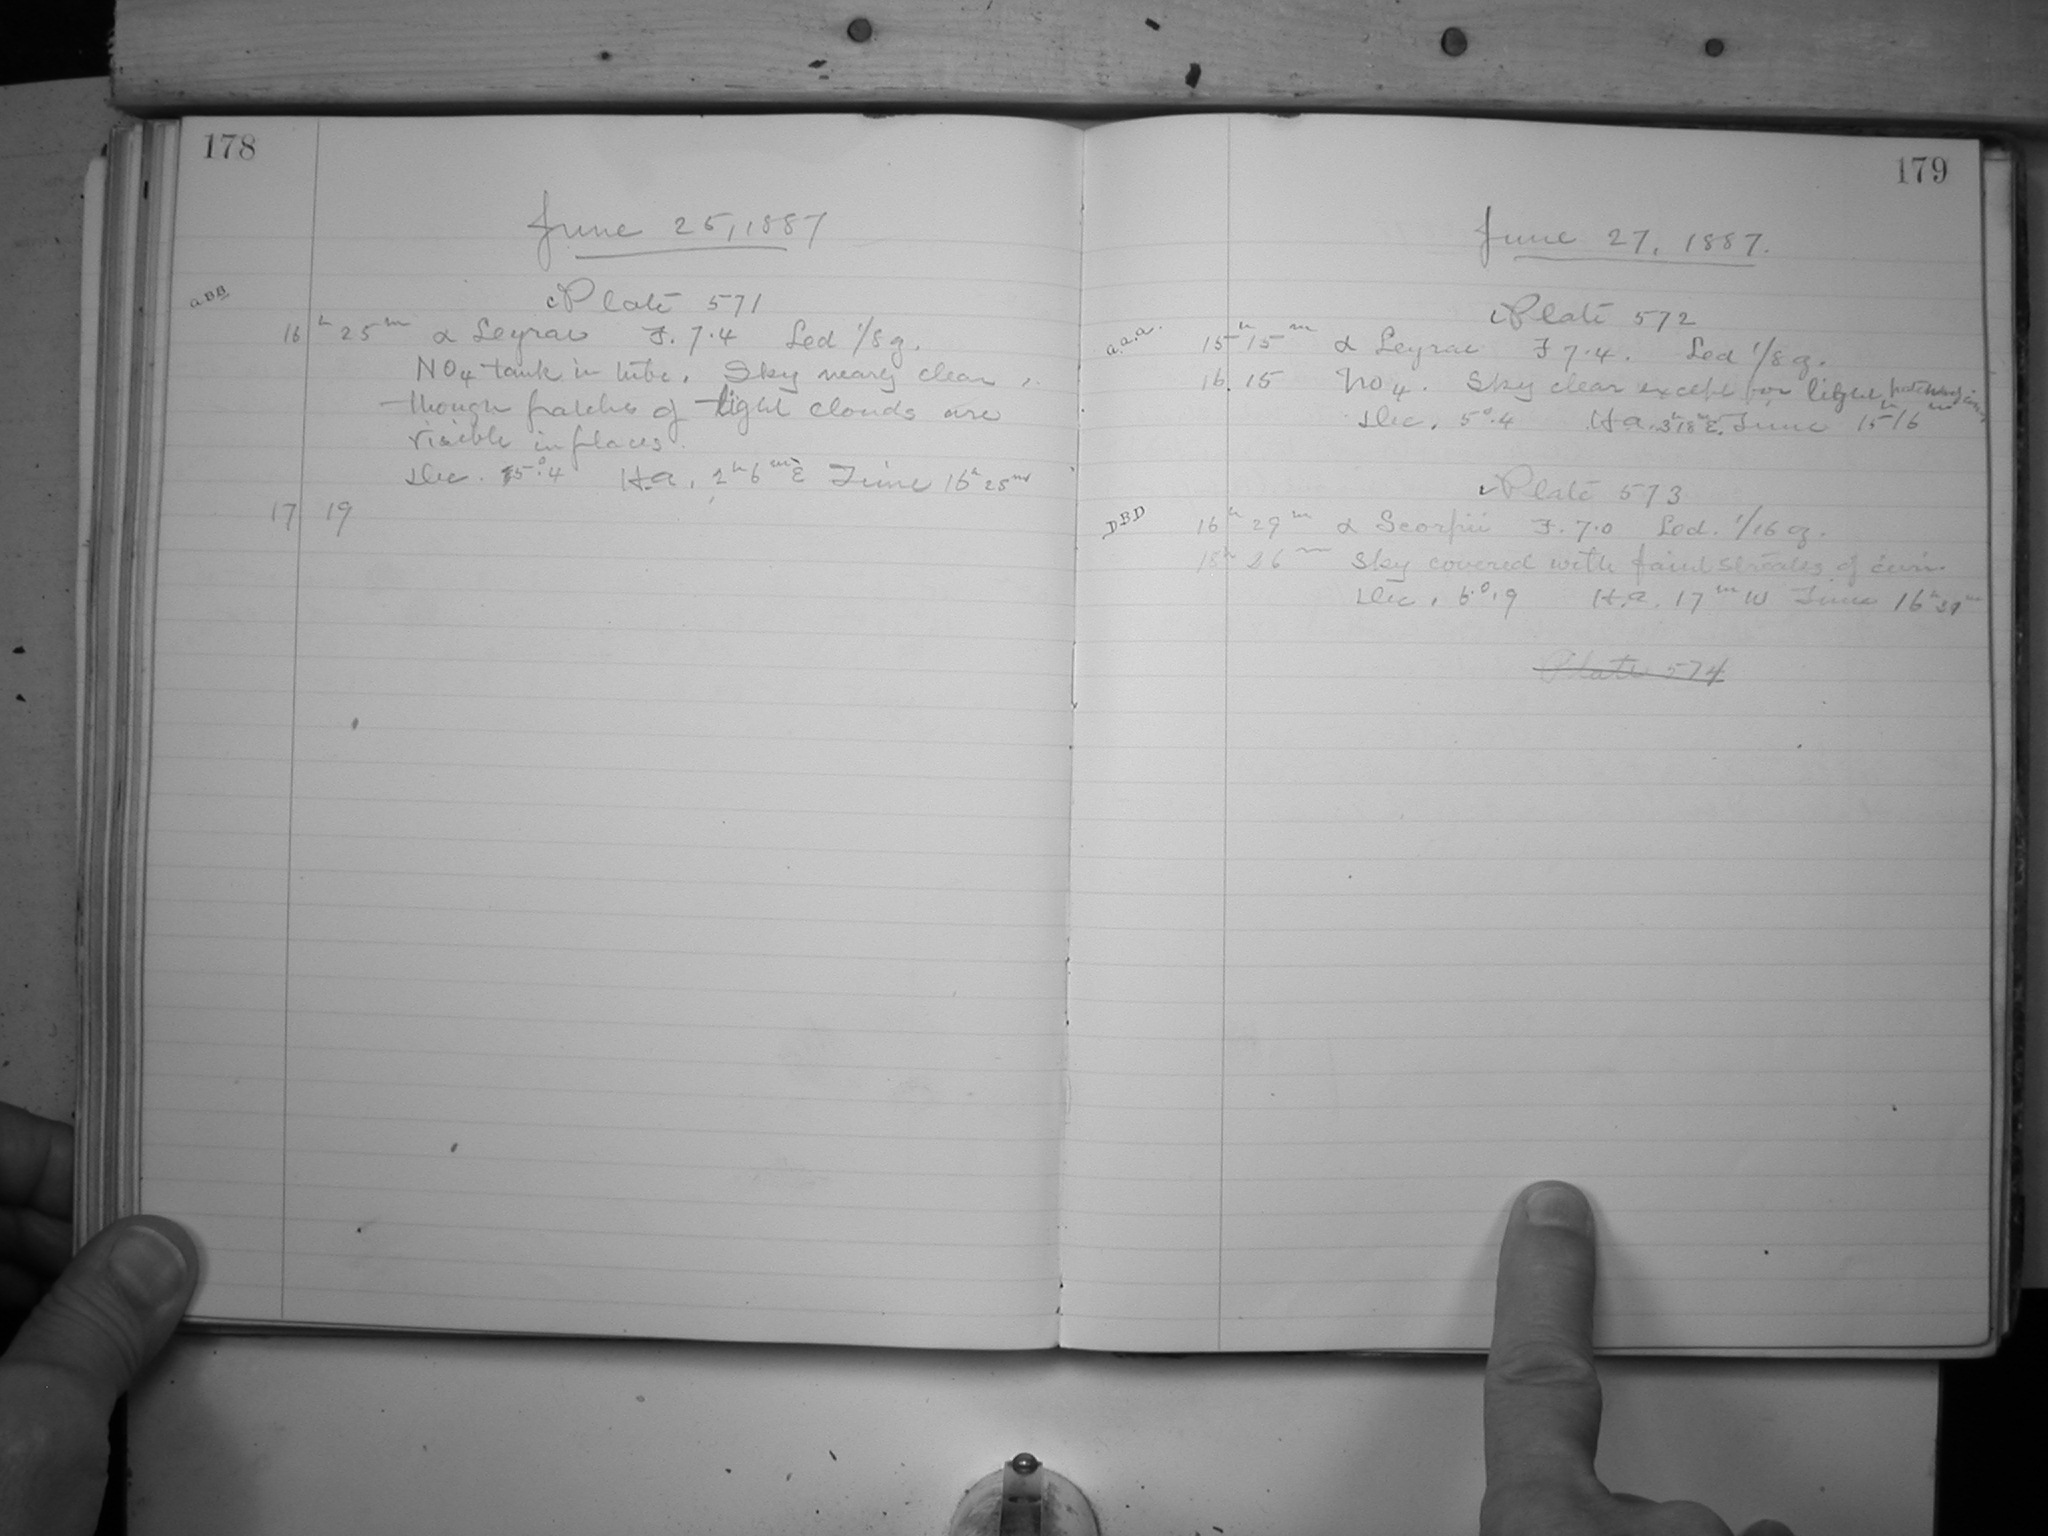 178
June 25, 1887
Plate 571
aBB
16h 25m α Leyrae F. 7.4 Led 1/8 g.
NO4 tank in tube. Sky nearly clear,
though patches of light clouds are
visible in places.
Dec. 5°.4 H.a. 2h 6m E Time 16h 25m
17 19
179
June 27, 1887.
Plate 572
a.a.a.
15h 15m α Leyrae F 7.4. Led 1/8 g.
16 15 NO4. Sky clear except for light patches of
Dec. 5°.4 H.a. 3h18m E. Time 15h 16m
Plate 573
DBD
16h 29m α Scorpii F. 7.0 Led. 1/16 g.
15h 26m Sky covered with faint streaks of cirri.
Dec. 6°.9 H.a. 17m W Time 16h 29m
Plate 574